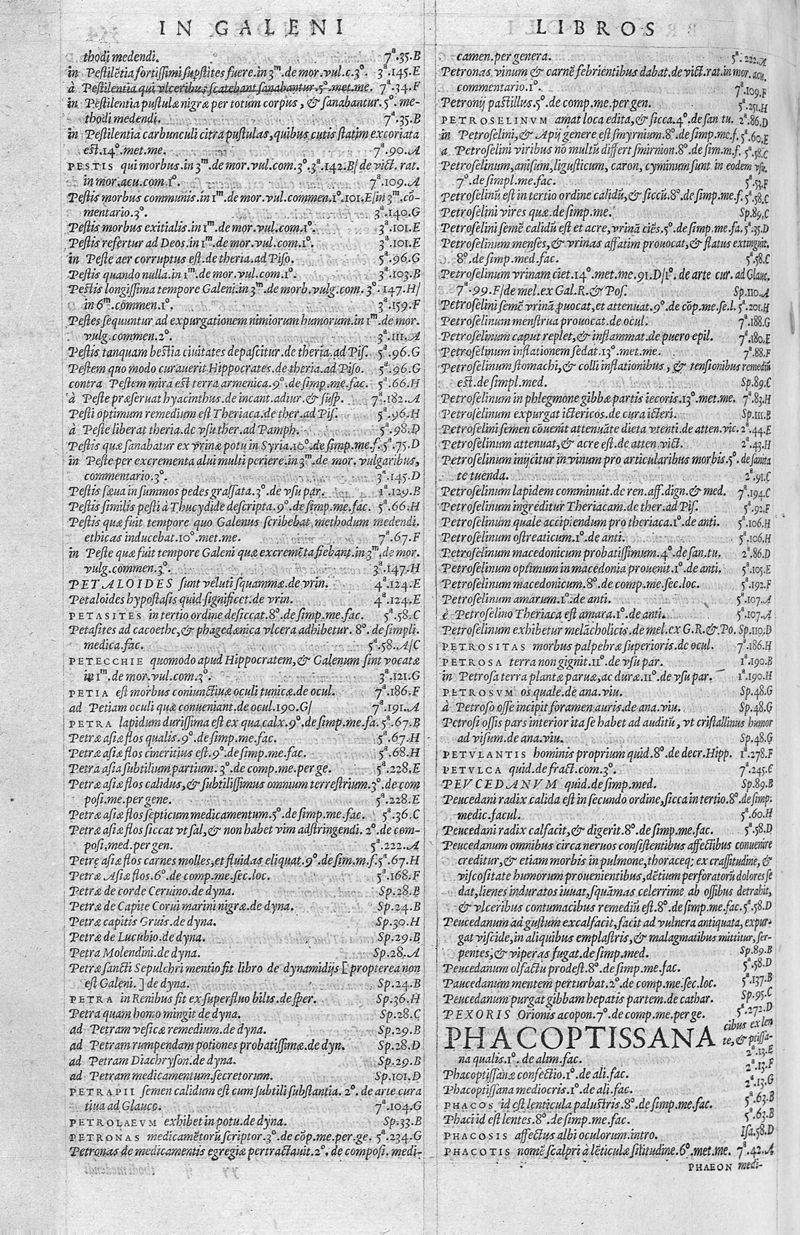 IN GALENI
thodi medendi. 7ª.35.B
in Pestilẽtia fortissimi supstites fuere.in 3ᵐ.de mor.vul.c.3º. 3ª.145.E
à Pestilentia qui vlceribus scatebant sanabantur.5º.met.me. 7ª.34.F
in Pestilentia pustulæ nigræ per totum corpus, & sanabantur.5º. me-
thodi medendi. 7ª.35.B
in Pestilentia carbunculi citra pustulas, quibus cutis statim excoriata
est.14º.met.me. 7ª.90.A
PESTIS qui morbus.in 3ᵐ.de mor.vul.com.3º.3ª.142.B/de vict. rat.
in mor.acu.com.1º. 7ª.109.A
Pestis morbus communis.in 1ᵐ.de mor.vul.commen.1º.101.E/in 3ᵐ.cõ-
mentario.3º. 3ª.140.G
Pestis morbus exitialis.in 1ᵐ.de mor.vul.com.1º. 3ª.101.E
Pestis refertur ad Deos.in 1ᵐ.de mor.vul.com.1º. 3ª.101.E
in Peste aer corruptus est.de theria.ad Piso. 5ª.96.G
Pestis quando nulla.in 1ᵐ.de mor.vul.com.1º. 3ª.103.B
Pestis longissima tempore Galeni.in 3ᵐ.de morb.vulg.com.3º.3ª.147.H/
in 6ᵐ.commen.1º. 3ª.159.F
Pestes sequuntur ad expurgationem nimiorum humorum.in 1ᵐ.de mor.
vulg.commen.2º. 3ª.111.A
Pestis tanquam bestia ciuitates depascitur.de theria.ad Pis. 5ª.96.G
Pestem quo modo curauerit Hippocrates.de theria.ad Piso. 5ª.96.G
contra Pestem mira est terra armenica.9º.de simp.me.fac. 5ª.66.H
à Peste præseruat hyacinthus.de incant.adiur.& susp. 7ª.182.A
Pesti optimum remedium est Theriaca.de ther.ad Pis. 5ª.96.H
à Peste liberat theria.de vsu ther.ad Pamph. 5ª.98.D
Pestis quæ sanabatur ex vrinæ potu in Syria.10º.de simp.me.f.5ª.75.D
in Peste per excrementa alui multi periere.in 3ᵐ.de mor. vulgaribus,
commentario.3º. 3ª.145.D
Pestis sæua in summos pedes grassata.3º.de vsu par. 1ª.129.B
Pestis similis pesti à Thucydide descripta.9º.de simp.me.fac. 5ª.66.H
Pestis quæ fuit tempore quo Galenus scribebat methodum medendi.
ethicas inducebat.10º.met.me. 7ª.67.F
in Peste quæ fuit tempore Galeni quæ excremẽta fiebant.in 3ᵐ.de mor.
vulg.commen.3º. 3ª.147.H
PETALOIDES sunt veluti squammæ.de vrin. 4ª.124.E
Petaloides hypostasis quid significet.de vrin. 4ª.124.E
PETASITES in tertio ordine desiccat.8º.de simp.me.fac. 5ª.58.C
Petasites ad cacoethe,& phagedænica vlcera adhibetur. 8º.de simpli.
medica.fac. 5ª.58.A/C
PETECCHIE quomodo apud Hippocratem,& Galenum sint vocatæ
in 1ᵐ.de mor.vul.com.3º. 3ª.121.G
PETIA est morbus coniunctiuæ oculi tunicæ.de ocul. 7ª.186.F
ad Petiam oculi quæ conueniant.de ocul.190.G/ 7ª.191.A
PETRA lapidum durissima est ex qua calx.9º.de simp.me.fa.5ª.67.B
Petræ asiæ flos qualis.9º.de simp.me.fac. 5ª.67.H
Petræ asiæ flos cineritius est.9º.de simp.me.fac. 5ª.68.H
Petra asia subtilium partium. 3º.de comp.me.per ge. 5ª.228.E
Petræ asiæ flos calidus,& subtilissimus omnium terrestrium.3º.de com
posi.me.per gene. 5ª.228.E
Petræ asiæ flos septicum medicamentum.5º.de simp.me.fac. 5ª.36.C
Petræ asiæ flos siccat vt sal,& non habet vim adstringendi. 2º.de com-
posi.med.per gen. 5ª.222.A
Petrę asiæ flos carnes molles,et fluidas eliquat.9º.de sim.m.f.5ª.67.H
Petræ Asiæ flos.6º.de comp.me.sec.loc. 5ª.168.F
Petræ de corde Ceruino.de dyna. Sp.28.B
Petræ de Capite Corui marini nigræ.de dyna. Sp.24.B
Petræ capitis Gruis.de dyna. Sp.30.H
Petræ de Lucubio.de dyna. Sp.29.B
Petra Molendini.de dyna. Sp.28.A
Petræ sancti Sepulchri mentio fit libro de dynamidijs [propterea non
est Galeni.] de dyna. Sp.24.B
PETRA in Renibus fit ex superfluo bilis.de sper. Sp.36.H
Petra quam homo mingit de dyna. Sp.28.C
ad Petram vesicæ remedium.de dyna. Sp.29.B
ad Petram rumpendam potiones probatissimæ.de dyn. Sp.28.D
ad Petram Diachryson.de dyna. Sp.29.B
ad Petram medicamentum.secretorum. Sp.101.D
PETRAPII semen calidum est cum subtili substantia. 2º.de arte cura
tiua ad Glauco. 7ª.104.G
PETROLAEVM exhibet in potu.de dyna. Sp.33.B
PETRONAS medicamẽtorũ scriptor.3º.de cõp.me.per ge. 5ª.234.G
Petronas de medicamentis egregiæ pertractauit.2º. de composi. medi-
LIBROS
camen.per genera. 5ª.222.A
Petronas vinum & carnẽ febrientibus dabat.de vict.rat.in mor.acu.
commentario.1º. 7ª.109.F
Petronij pastillus.5º.de comp.me.per gen. 5ª.251.H
PETROSELINVM amat loca edita,& sicca.4º.de san tu. 2ª.86.D
in Petroselini,& Apij genere est smyrnium.8º.de simp.me.f. 5ª.60.E
a Petroselini viribus nõ multũ differt smirnion.8º.de sim.m.f. 5ª.58.C
Petroselinum,anisum,ligusticum, caron, cyminum sunt in eodem vsu.
7º.de simpl.me.fac. 5ª.53.F
Petroselinũ est in tertio ordine calidũ,& siccũ.8º.de simp.me.f.5ª.58.C
Petroselini vires quæ.de simp.me. Sp.89.C
Petroselini semẽ calidũ est et acre, vrinã ciẽs.5º.de simp.me.fa.5ª.35.D
Petroselinum menses,& vrinas affatim prouocat,& flatus extinguit.
8º.de simp.med.fac. 5ª.58.C
Petroselinum vrinam ciet.14º.met.me.91.D/1º.de arte cur.ad Glau.
7ª.99.F/de mel.ex Gal.R.& Pos. Sp.110.A
Petroselini semẽ vrinã puocat,et attenuat.9º.de cõp.me.se.l.5ª.201.H
Petroselinum menstrua prouocat.de ocul. 7ª.188.G
Petroselinum caput replet,& inflammat.de puero epil. 7ª.180.E
Petroselinum inflationem sedat.13º.met.me. 7ª.88.F
Petroselinum stomachi,& colli inflationibus, & tensionibus remediũ
est.de simpl.med. Sp.89.C
Petroselinum in phlegmone gibbæ partis iecoris.13º.met.me. 7ª.83.H
Petroselinum expurgat ictericos.de cura icteri. Sp.111.B
Petroselini semen cõuenit attenuãte dieta vtenti.de atten.vic.2ª.44.E
Petroselinum attenuat,& acre est.de atten.vict. 2ª.43.H
Petroselinum inijcitur in vinum pro articularibus morbis.5º.de sanita
te tuenda. 2ª.91.C
Petroselinum lapidem comminuit.de ren.aff.dign.& med. 7ª.194.C
Petroselinum ingreditur Theriacam.de ther.ad Pis. 5ª.92.F
Petroselinum quale accipiendum pro theriaca.1º.de anti. 5ª.106.H
Petroselinum ostreaticum.1º.de anti. 5ª.106.H
Petroselinum macedonicum probatissimum.4º.de san.tu. 2ª.86.D
Petroselinum optimum in macedonia prouenit.1º.de anti. 5ª.105.E
Petroselinum macedonicum.8º.de comp.me.sec.loc. 5ª.192.F
Petroselinum amarum.1º.de anti. 5ª.107.A
è Petroselino Theriaca est amara.1º.de anti. 5ª.107.A
Petroselinum exhibetur melãcholicis.de mel.ex G.R.& Po. Sp.110.D
PETROSITAS morbus palpebræ superioris.de ocul. 7ª.186.H
PETROSA terra non gignit.11º.de vsu par. 1ª.190.B
in Petrosa terra plantæ paruæ,ac duræ.11º.de vsu par. 1ª.190.H
PETROSVM os quale.de ana.viu. Sp.48.G
à Petroso osse incipit foramen auris.de ana.viu. Sp.48.G
Petrosi ossis pars interior ita se habet ad auditũ, vt cristallinus humor
ad visum.de ana.viu. Sp.48.G
PETVLANTIS hominis proprium quid.8º.de decr.Hipp. 1ª.278.F
PETVLCA quid.de fract.com.3º. 7ª.245.C
PEVCEDANVM quid.de simp.med. Sp.89.B
Peucedani radix calida est in secundo ordine,sicca in tertio.8º.de simp.
medic.facul. 5ª.60.H
Peucedani radix calfacit,& digerit.8º.de simp.me.fac. 5ª.58.D
Peucedanum omnibus circa neruos consistentibus affectibus conuenire
creditur,& etiam morbis in pulmone,thoraceq; ex crassitudine,&
viscositate humorum prouenientibus,dẽtium perforatorũ dolores se
dat,lienes induratos iuuat,squãmas celerrime ab ossibus detrahit,
& vlceribus contumacibus remediũ est.8º.de simp.me.fac.5ª.58.D
Peucedanum ad gustum excalfacit,facit ad vulnera antiquata,expur-
gat viscide,in aliquibus emplastris,& malagmatibus mittitur,ser-
pentes,& viperas fugat.de simp.med. Sp.89.B
Peucedanum olfactu prodest.8º.de simp.me.fac. 5ª.58.D
Paucedanum mentem perturbat.2º.de comp.me.sec.loc. 5ª.137.B
Peucedanum purgat gibbam hepatis partem.de cathar. Sp.95.C
PEXORIS Orionis acopon.7º.de comp.me.per ge. 5ª.272.D
PHACOPTISSANA cibus ex len
te,& ptissa-
na qualis.1º.de alim.fac. 2ª.13.E
Phacoptissanæ confectio.1º.de ali.fac. 2ª.13.F
Phacoptissana mediocris.1º.de ali.fac. 2ª.13.G
PHACOS id est lenticula palustris.8º.de simp.me.fac. 5ª.63.B
Phaci id est lentes.8º.de simp.me.fac. 5ª.63.B
PHACOSIS affectus albi oculorum.intro. Isa.58.D
PHACOTIS nomẽ scalpri à lẽticulæ silitudine.6º.met.me. 7ª.42.A
PHAEON medi-